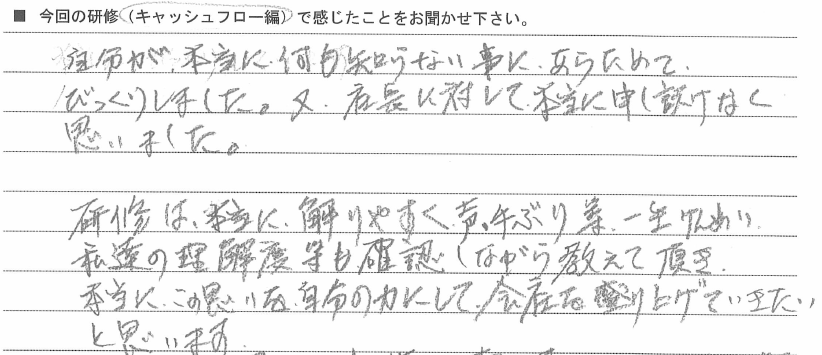 ■ 今回の研修（キャッシュフロー編）で感じたことをお聞かせ下さい。
自分が、本当に何も知らない事に、あらためて、
びっくりしました。又、店長に対して、本当に申し訳けなく
思いました。
研修は、本当に、解りやすく、声、手ぶり等、一生けんめい、
私達の理解度等も確認しながら教えて頂き、
本当に、この思いを、自分の力にして、会社を盛り上げていきたい
と思います。